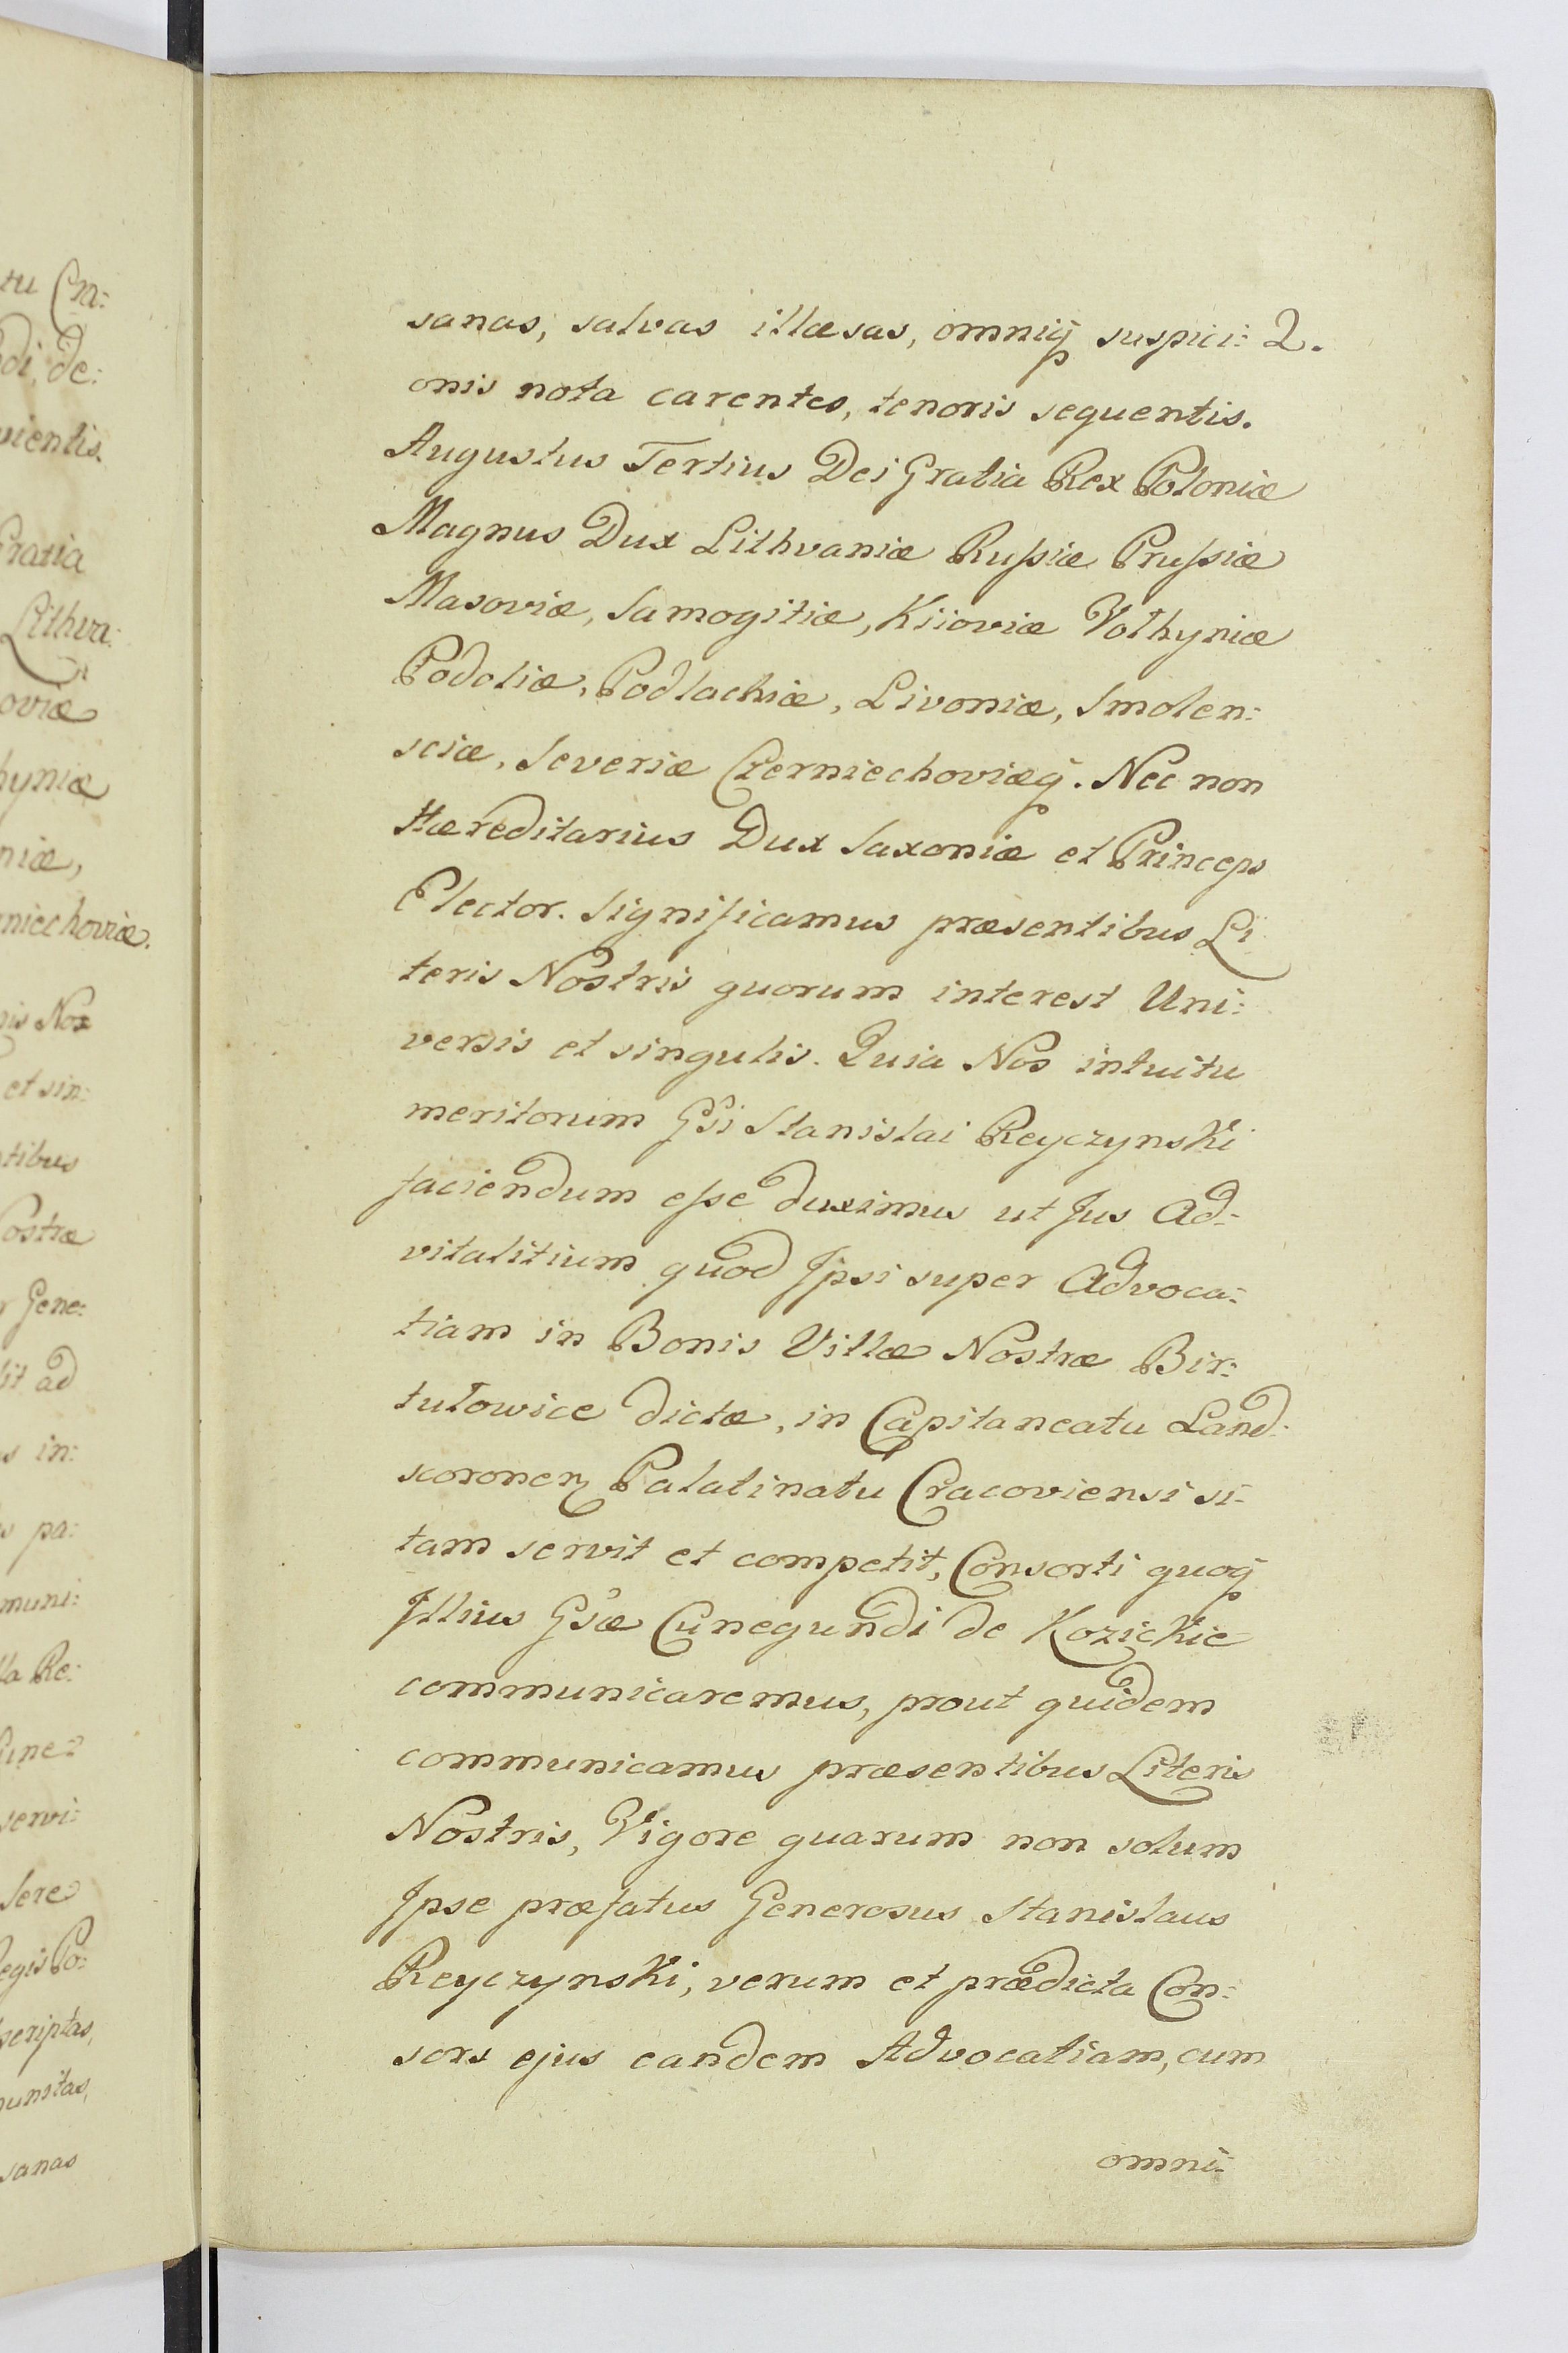 tu Cra:
di, de:
vientis.
Gratia
Lithva:
oviæ
hyniæ
niæ,
niechoviæ.
nis Nos
et sin:
tibus
Nostræ
r Gene:
lit ad
s in:
s pa:
muni:
lla Re:
Cune:
servi:
Sere
Regis Po:
scriptas,
munitas,
sanas
2.
sanas, salvas illæsas, omniq̃ suspici:
onis nota carentes, tenoris sequentis.
Augustus Tertius Dei Gratia Rex Poloniæ
Magnus Dux Lithvaniæ Rußiæ Prußiæ
Masoviæ, Samogitiæ, Kiioviæ Volhyniæ
Podoliæ, Podlachiæ, Livoniæ, Smolen:
sciæ, Severiæ Czerniechoviæq̃. Nec non
Hæreditarius Dux Saxoniæ et Princeps
Elector. Significamus præsentibus Li
teris Nostris quorum interest Uni:
versis et singulis. Quia Nos intuitu
meritorum Gsi Stanislai Reyczynski
faciendum eße duximus ut Jus Ad:
vitalitium quod Ipsi super Advoca:
tiam in Bonis Villæ Nostræ Bir:
tułowice dictæ, in Capitaneatu Land:
scoronen Palatinatu Cracoviensi si:
tam servit et competit, Consorti quoq̃
Illius Gsæ Cunegundi de Kozickie
communicaremus, prout quidem
communicamus præsentibus Literis
Nostris, Vigore quarum non solum
Ipse præfatus Generosus Stanislaus
Reyczynski, verum et prædicta Con:
sors ejus eandem Advocatiam, cum
omni: